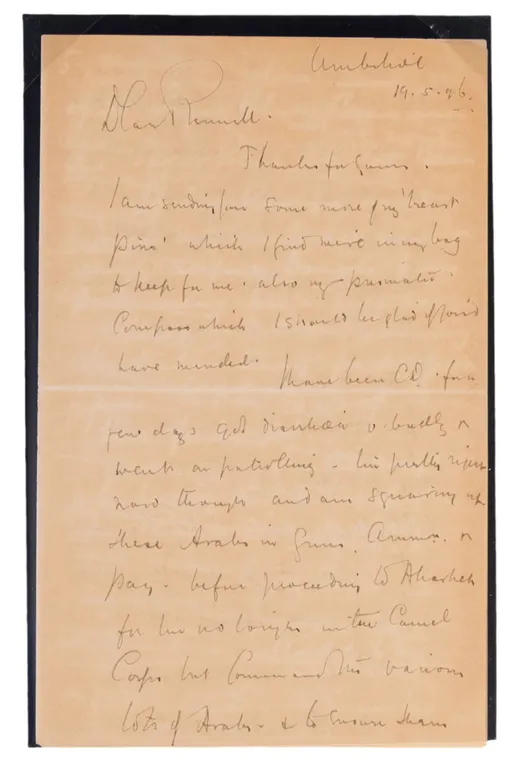 19.5.96.
Dear Rennell.
Thanks for yours.
I am sending you some more of my 'breast
pins' which I find were in my bag
to keep for me. also my prismatic
Compass which I should be glad if you'd
have mended.
I have been C.O. for a
few days got diarrhoea v. badly &
went on patrolling. I'm pretty
now though and am squaring up
these Arabs in Guns, Ammn. &
pay. before proceeding to Akasheh
for I'm no longer in the Camel
Corps but Commandant various
lots of Arabs. & to ensure them